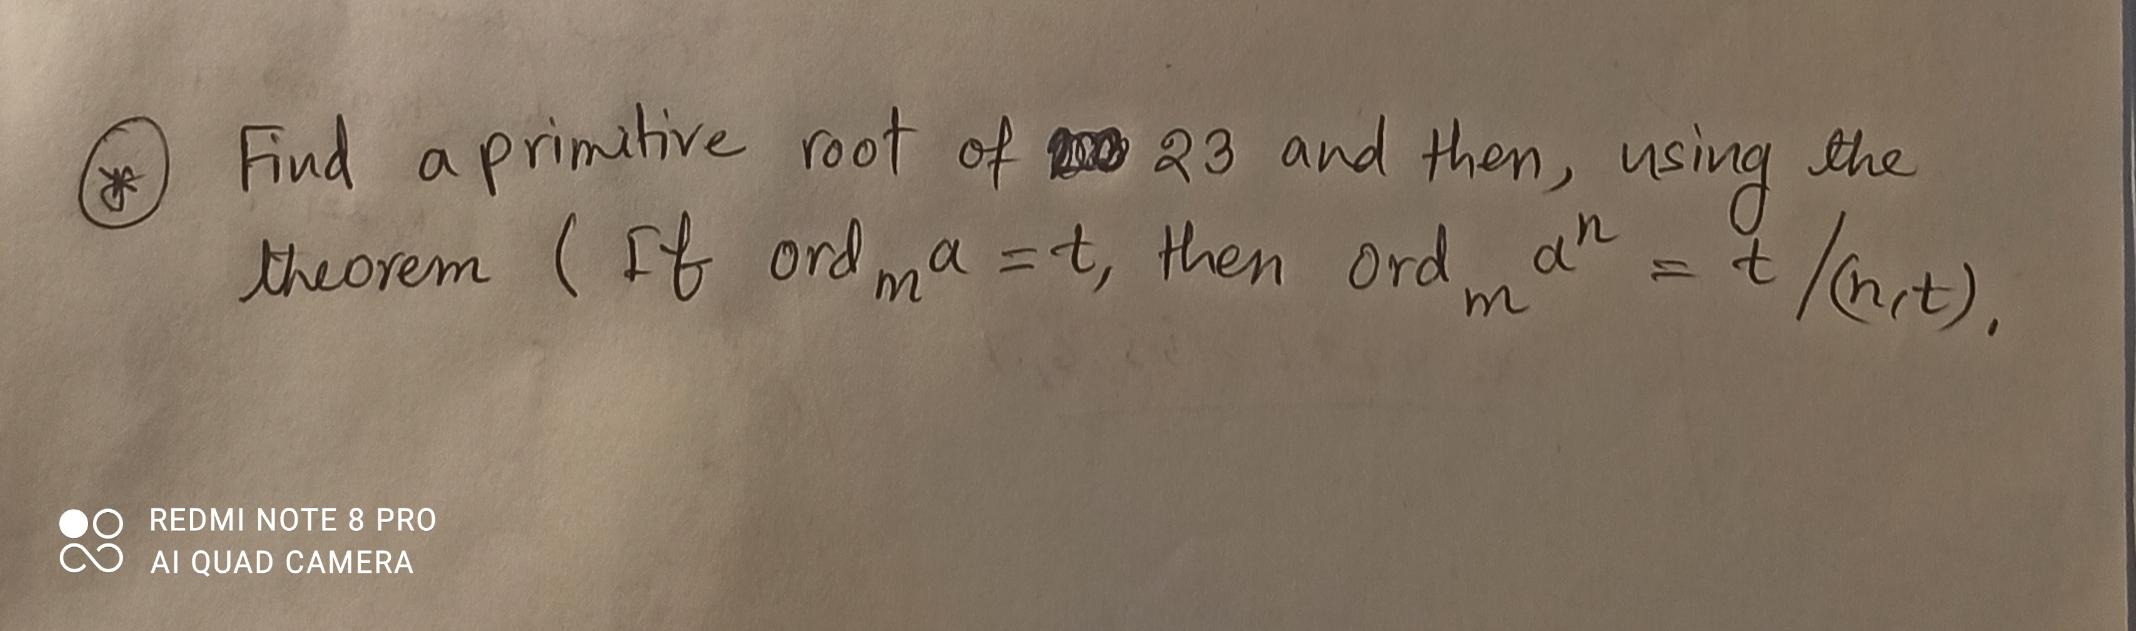 Find a primitive root of 23 and then, using the
theorem ( If ord_m a = t, then ord_m a^n = t/(n,t).
REDMI NOTE 8 PRO
AI QUAD CAMERA